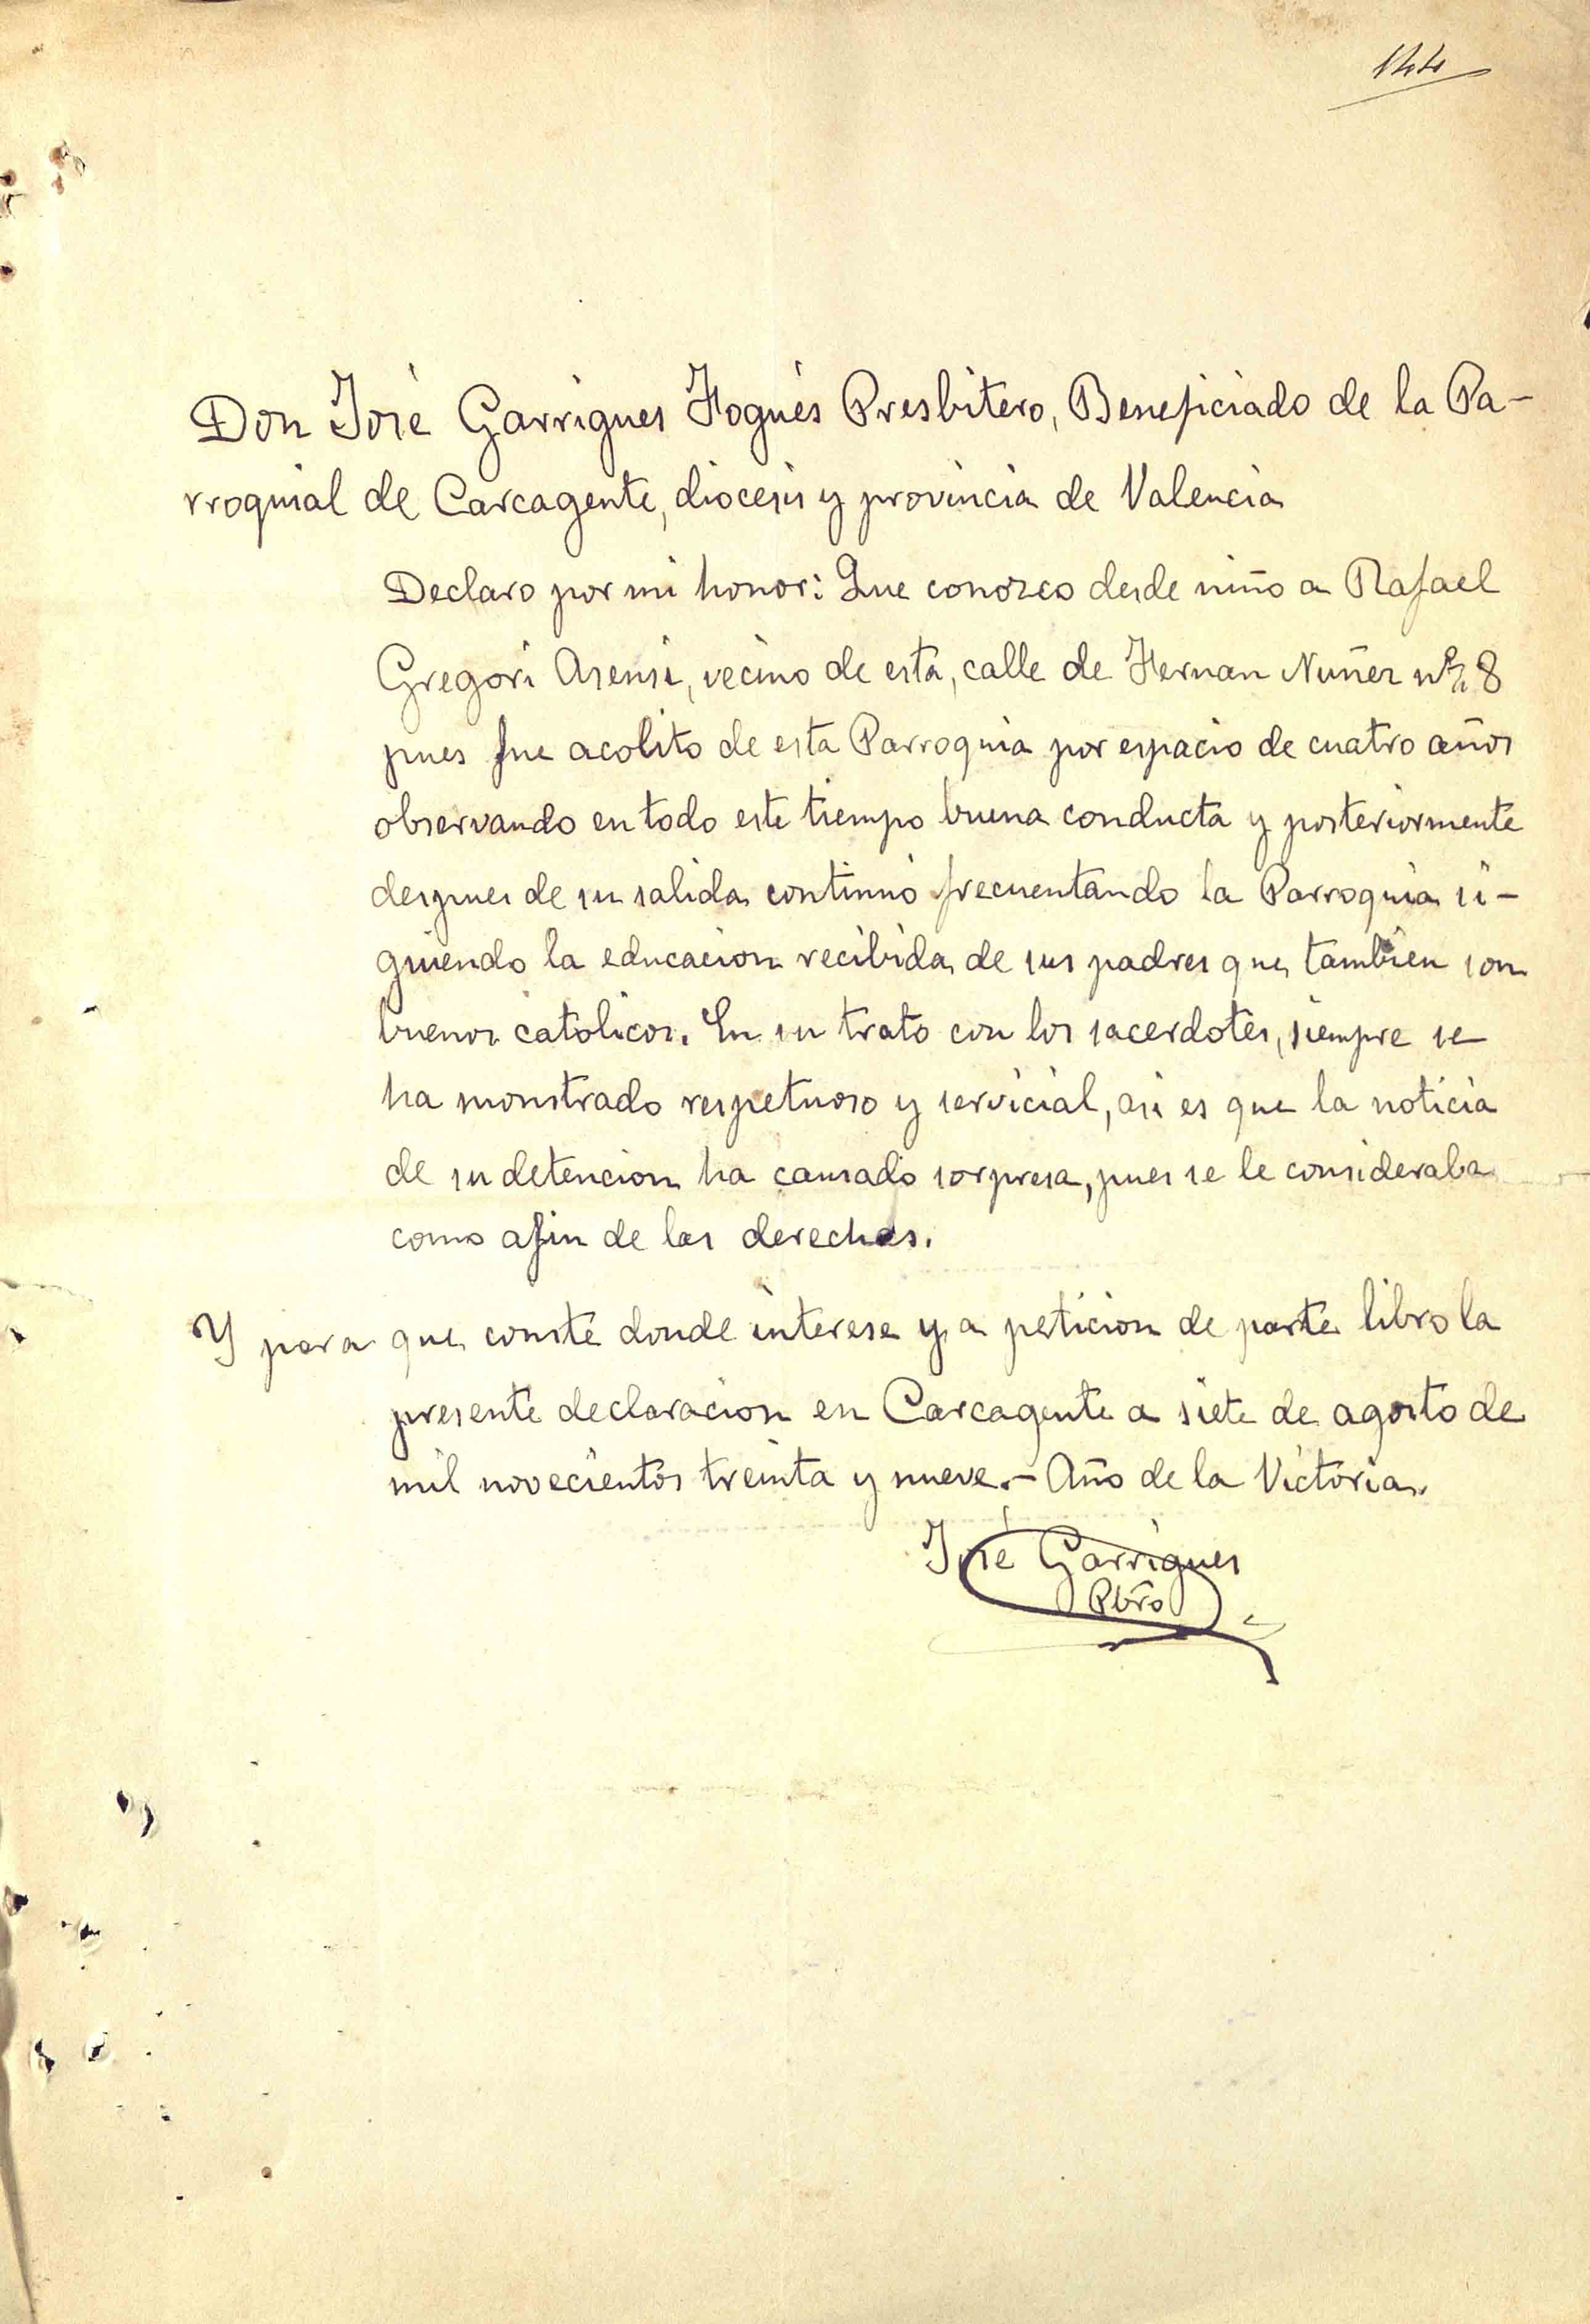 144
Don José Garrigues Fogués Presbitero, Beneficiado de la Pa-
rroquial de Carcagente, diocesis y provincia de Valencia
Declaro por mi honor: Que conozco desde niño a Rafael
Gregori Asensi, vecino de esta, calle de Hernan Nuñez nº 8
pues fue acolito de esta Parroquia por espacio de cuatro años
observando en todo este tiempo buena conducta y posteriormente
despues de su salida continuó frecuentando la Parroquia si-
guiendo la educacion recibida de sus padres que tambien son
buenos catolicos. En su trato con los sacerdotes, siempre se
ha monstrado respetuoso y servicial, asi es que la noticia
de su detencion ha causado sorpresa, pues se le consideraba
como afin de las derechas.
Y para que conste donde interese y a peticion de parte libro la
presente declaracion en Carcagente a siete de agosto de
mil novecientos treinta y nueve.- Año de la Victoria.
José Garrigues
Pbro